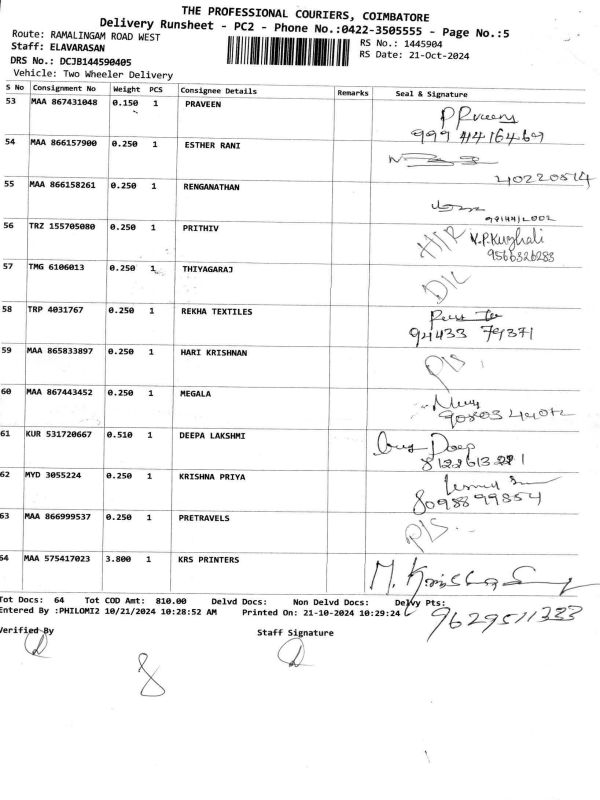 THE PROFESSIONAL COURIERS, COIMBATORE
Delivery Runsheet - PC2 - Phone No.:0422-3505555 - Page No.:5
Route: RAMALINGAM ROAD WEST
RS No.: 1445904
Staff: ELAVARASAN
RS Date: 21-Oct-2024
DRS No.: DCJB144590405
Vehicle: Two Wheeler Delivery
S No Consignment No Weight PCS Consignee Details Remarks Seal & Signature
53 MAA 867431048 0.150 1 PRAVEEN
54 MAA 866157900 0.250 1 ESTHER RANI
55 MAA 866158261 0.250 1 RENGANATHAN
56 TRZ 155705080 0.250 1 PRITHIV H/R V.P.Kuzhali
9566326283
57 TMG 6106013 0.250 1 THIYAGARAJ D/L
58 TRP 4031767 0.250 1 REKHA TEXTILES
94433 79371
59 MAA 865833897 0.250 1 HARI KRISHNAN P/S
60 MAA 867443452 0.250 1 MEGALA
61 KUR 531720667 0.510 1 DEEPA LAKSHMI
62 MYD 3055224 0.250 1 KRISHNA PRIYA
8098899854
63 MAA 866999537 0.250 1 PRETRAVELS P/S
64 MAA 575417023 3.800 1 KRS PRINTERS
Tot Docs: 64 Tot COD Amt: 810.00 Delvd Docs: Non Delvd Docs: Delvy Pts:
Entered By :PHILOMI2 10/21/2024 10:28:52 AM Printed On: 21-10-2024 10:29:24
9629511333
Verified By Staff Signature